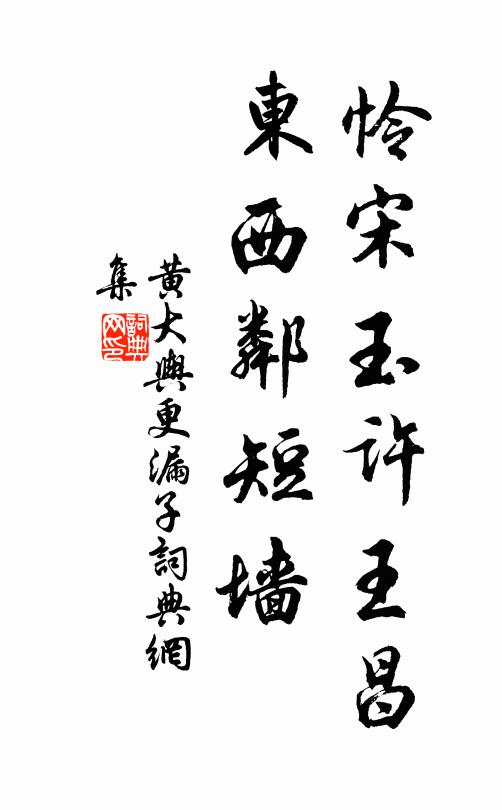 怜宋玉许王昌
東西鄰短墙
黄大輿更漏子詞典網
集
詞典網印